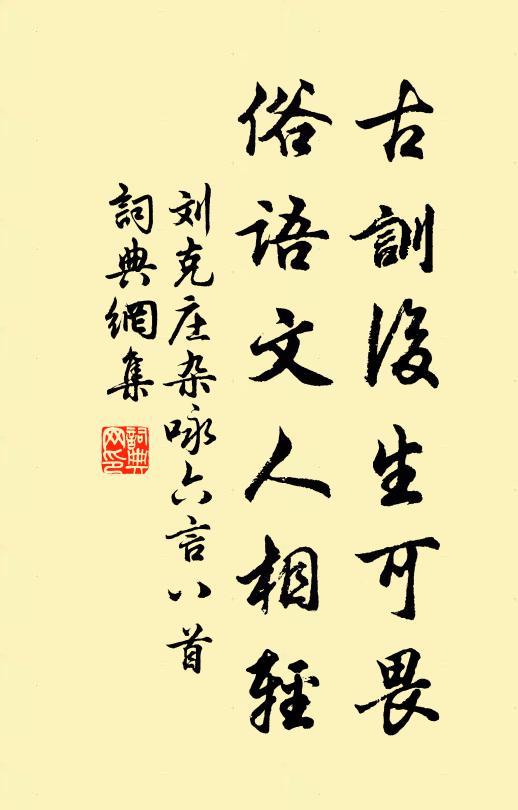 古訓後生可畏
俗語文人相輕
刘克庄杂咏六言八首
詞典網集
詞典网印